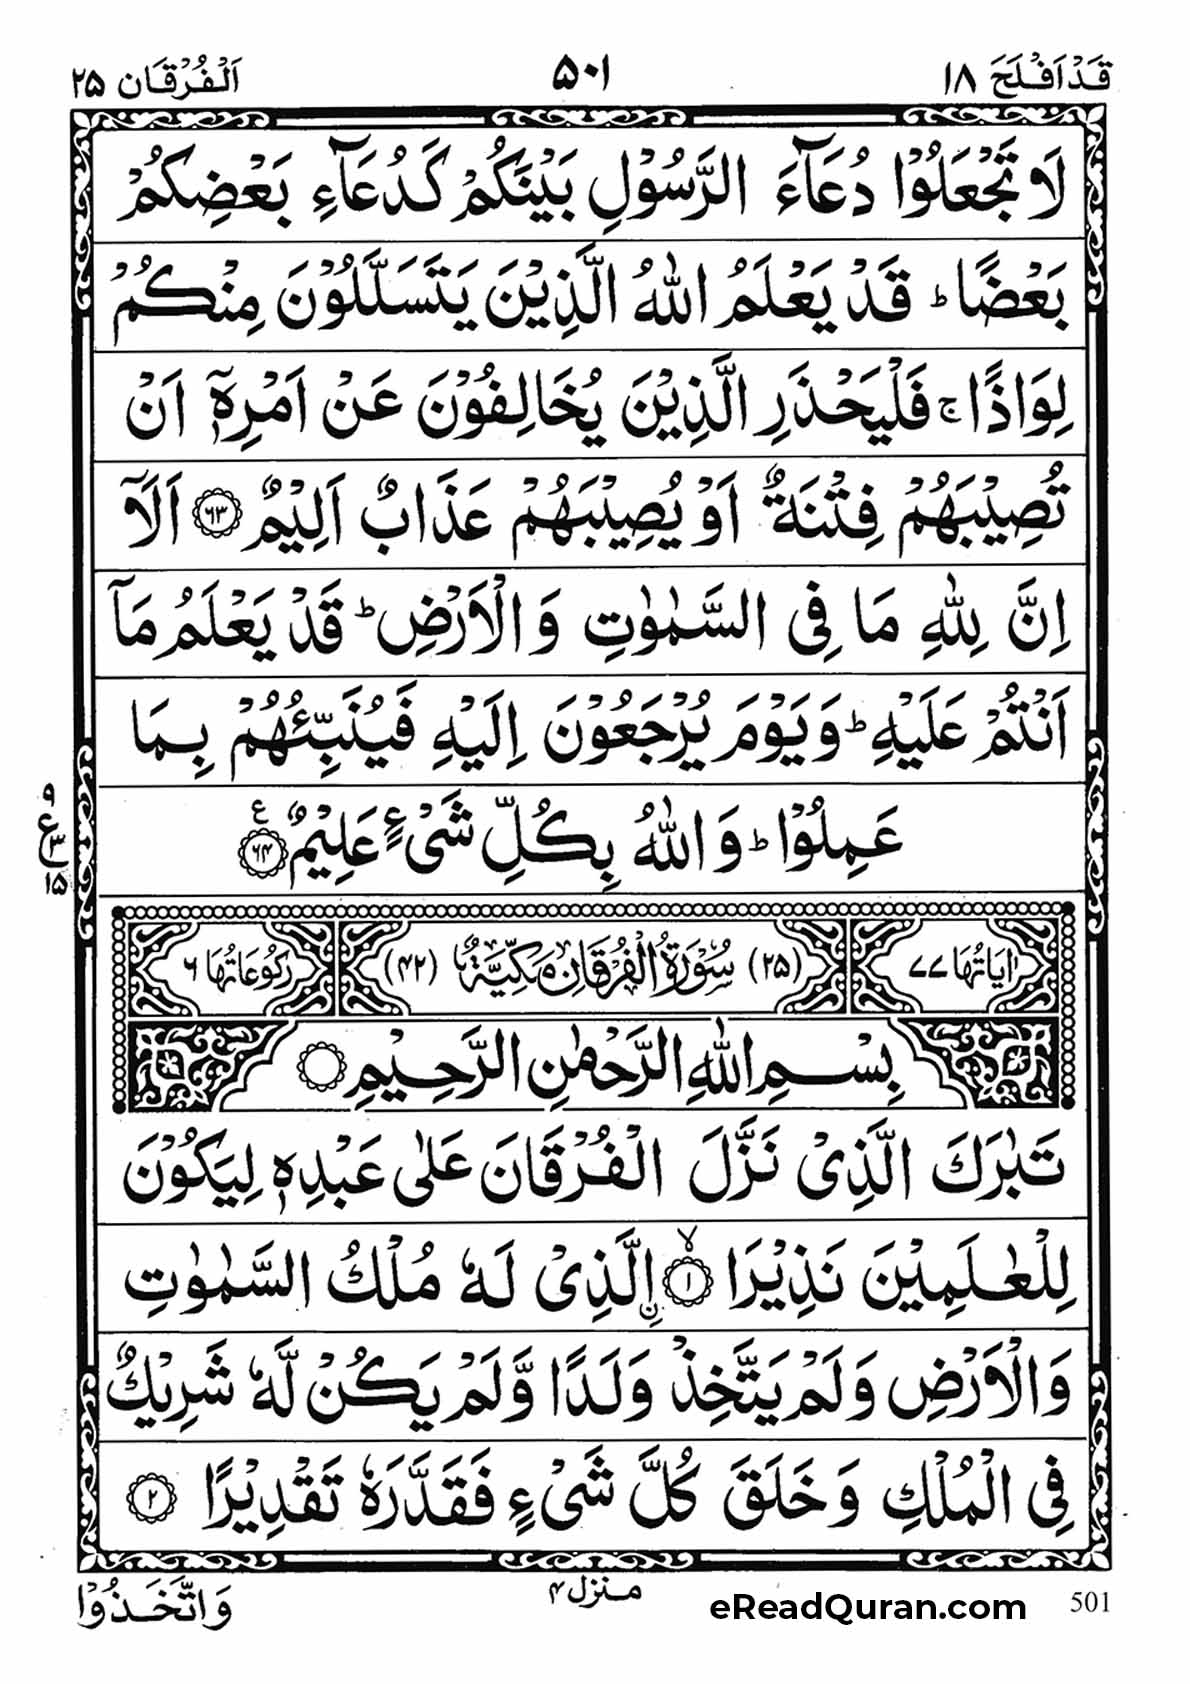 قَدْ اَفْلَحَ ۱۸
۵۰۱
اَلْفُرْقَان ۲۵
لَا تَجْعَلُوْا دُعَآءَ الرَّسُوْلِ بَيْنَكُمْ كَدُعَآءِ بَعْضِكُمْ
بَعْضًا ؕ قَدْ يَعْلَمُ اللّٰهُ الَّذِيْنَ يَتَسَلَّلُوْنَ مِنْكُمْ
لِوَاذًا ۚ فَلْيَحْذَرِ الَّذِيْنَ يُخَالِفُوْنَ عَنْ اَمْرِهٖۤ اَنْ
تُصِيْبَهُمْ فِتْنَةٌ اَوْ يُصِيْبَهُمْ عَذَابٌ اَلِيْمٌ ۶۳ اَلَاۤ
اِنَّ لِلّٰهِ مَا فِى السَّمٰوٰتِ وَالْاَرْضِ ؕ قَدْ يَعْلَمُ مَاۤ
اَنْتُمْ عَلَيْهِ ؕ وَيَوْمَ يُرْجَعُوْنَ اِلَيْهِ فَيُنَبِّئُهُمْ بِمَا
عَمِلُوْا ؕ وَاللّٰهُ بِكُلِّ شَىْءٍ عَلِيْمٌ ۶۴ ع
۹
ع ۳
۱۵
اٰيَاتُهَا ۷۷
(۲۵) سُوْرَةُ الْفُرْقَانِ مَكِّيَّةٌ (۴۲)
رُكُوْعَاتُهَا ۶
بِسْمِ اللّٰهِ الرَّحْمٰنِ الرَّحِيْمِ
تَبٰرَكَ الَّذِىْ نَزَّلَ الْفُرْقَانَ عَلٰى عَبْدِهٖ لِيَكُوْنَ
لِلْعٰلَمِيْنَ نَذِيْرًا ۙ ۱ اۨلَّذِىْ لَهٗ مُلْكُ السَّمٰوٰتِ
وَالْاَرْضِ وَلَمْ يَتَّخِذْ وَلَدًا وَّلَمْ يَكُنْ لَّهٗ شَرِيْكٌ
فِى الْمُلْكِ وَخَلَقَ كُلَّ شَىْءٍ فَقَدَّرَهٗ تَقْدِيْرًا ۲
وَاتَّخَذُوْا
منزل ۴
eReadQuran.com
501